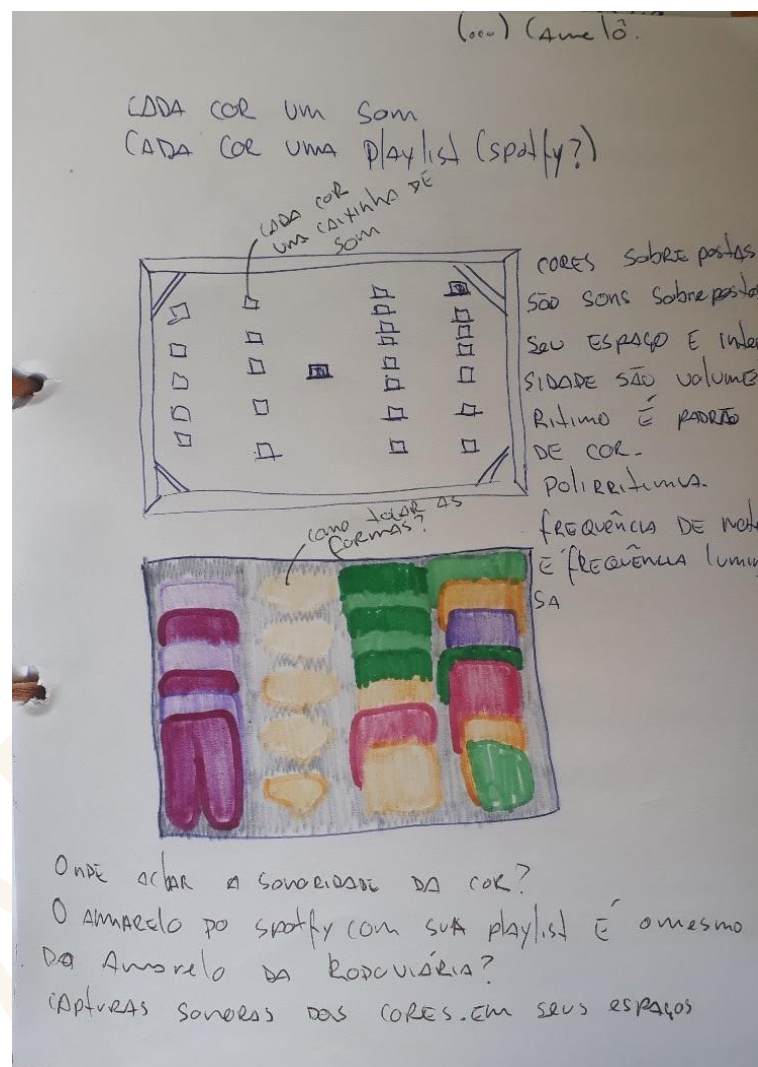 (...) Camelô.
CADA COR UM SOM
CADA COR UMA playlist (spotfy?)
CADA COR
UMA CAIXINHA DE
SOM
CORES SOBREpostAs
SÃO SONS Sobreposto
SEU ESPAÇO E INten
SIDADE SÃO volume
Ritimo É PADRÃO
DE COR.
POLIRRITIMIA.
FREQUÊNCIA DE not
É FREQUÊNCIA lumin
SA
COMO tocAR AS
FORMAS?
ONDE AChAR A SONORIDADE DA COR?
O AMARElo DO spotfy COM SUA playlist É o mesmo
DO Amarelo DA RODOVIÁRIA?
CAPtURAS SONORAS DAS CORES. EM SEUS ESPAÇOS